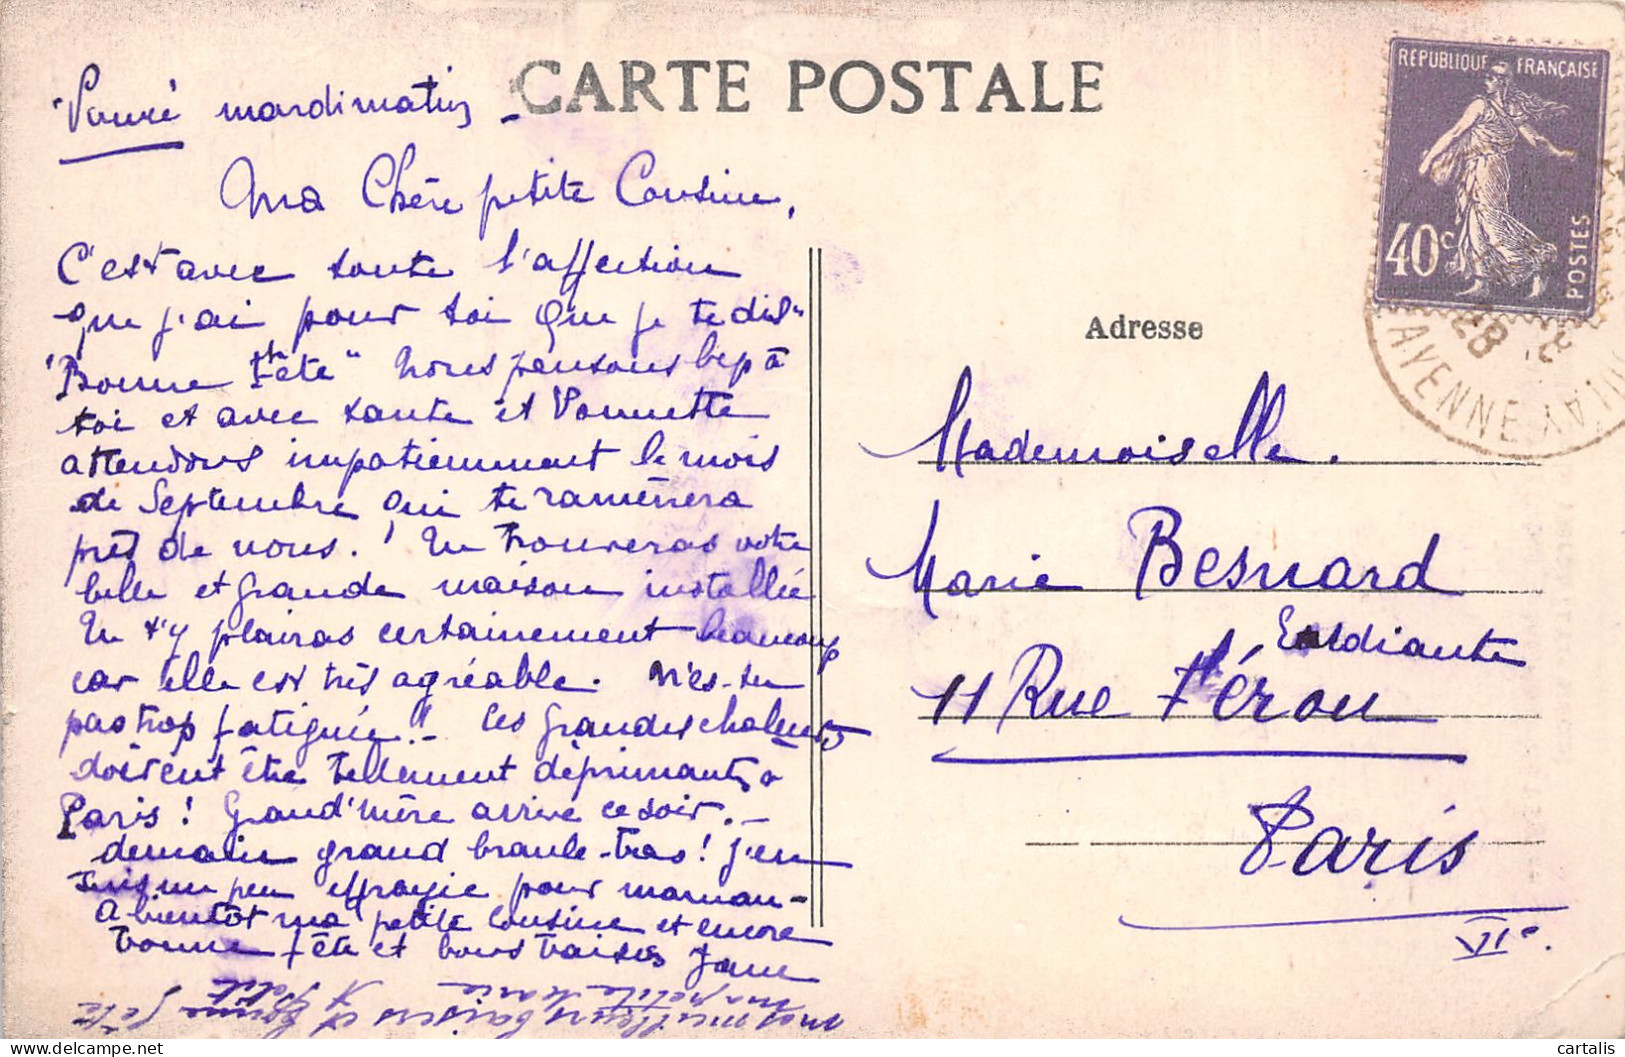 CARTE POSTALE
mardi matin
Ma Chère petite Cousine,
C'est avec toute l'affection
que j'ai pour toi que je te dis "
"Bonne Fête" Nous pensons bcp à
toi et avec tante et Vonnette
attendons impatiemment le mois
de Septembre qui te ramènera
près de nous. ! Tu trouveras votre
belle et grande maison installée
Tu t'y plairas certainement beaucoup
car elle est très agréable. N'es-tu
pas trop fatiguée!! - Les grandes chaleurs
doivent être tellement déprimantes à
Paris ! Grand'mère arrive ce soir. -
demain grand branle-bas ! j'en
suis un peu effrayée pour maman -
A bientôt ma petite Cousine et encore
bonne fête et bons baisers Jane
mes meilleurs baisers et bonne fête
ma petite Marie
RÉPUBLIQUE FRANÇAISE
40c
POSTES
28
MAYENNE
Adresse
Mademoiselle.
Marie Besnard
Etudiante
11 Rue Férou
Paris
VIe.
cartalis
www.delcampe.net